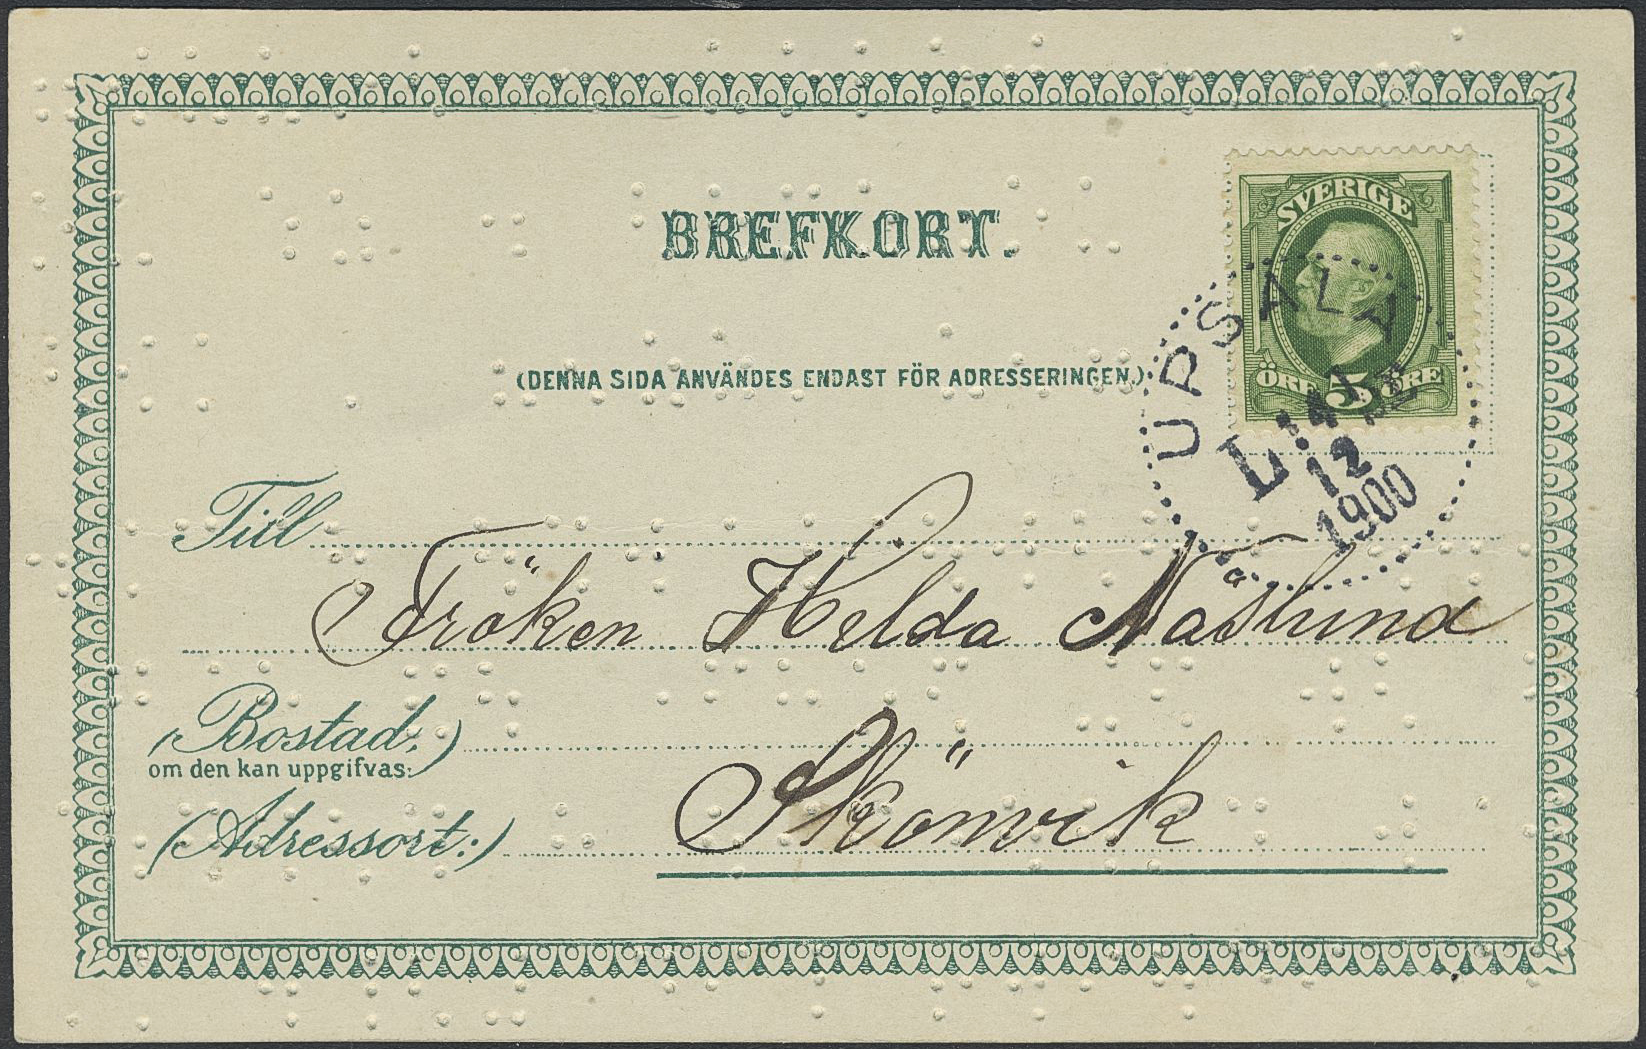 BREFKORT.
SVERIGE
ÖRE 5 ÖRE
UPSALA
12
1900
(DENNA SIDA ANVÄNDES ENDAST FÖR ADRESSERINGEN.)
Till
Fröken Hilda Näslund
(Bostad:)
om den kan uppgifvas:
Skönvik
(Adressort:)